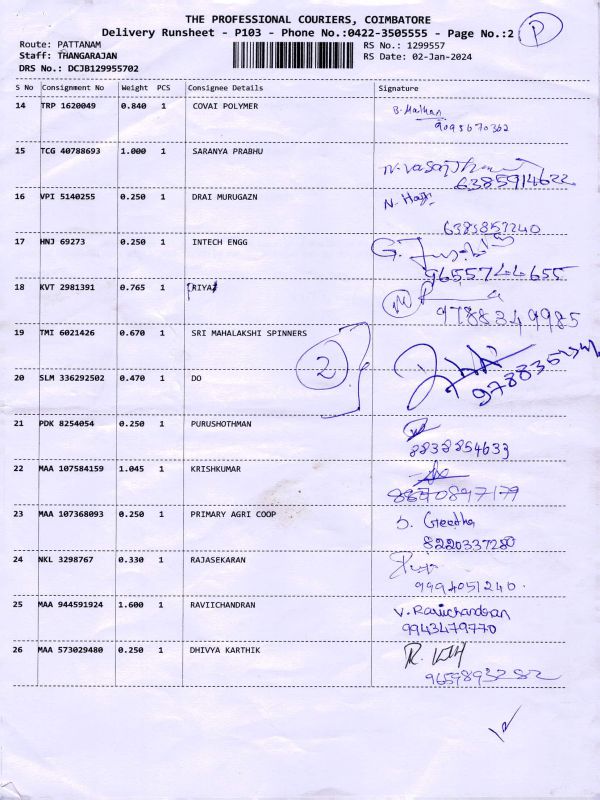 THE PROFESSIONAL COURIERS, COIMBATORE
Delivery Runsheet - P103 - Phone No.:0422-3505555 - Page No.:2 P
Route: PATTANAM RS No.: 1299557
Staff: THANGARAJAN RS Date: 02-Jan-2024
DRS No.: DCJB129955702
S No Consignment No Weight PCS Consignee Details Signature
14 TRP 1620049 0.840 1 COVAI POLYMER
9095670362
15 TCG 40788693 1.000 1 SARANYA PRABHU
6385914622
16 VPI 5140255 0.250 1 DRAI MURUGAZN
6383857240
17 HNJ 69273 0.250 1 INTECH ENGG
9655744655
18 KVT 2981391 0.765 1 PRIYA
9788349985
19 TMI 6021426 0.670 1 SRI MAHALAKSHI SPINNERS
2
20 SLM 336292502 0.470 1 DO
21 PDK 8254054 0.250 1 PURUSHOTHMAN
8838854633
22 MAA 107584159 1.045 1 KRISHKUMAR
8870897179
23 MAA 107368093 0.250 1 PRIMARY AGRI COOP
S. Geetha
8220337280
24 NKL 3298767 0.330 1 RAJASEKARAN
9994051240.
25 MAA 944591924 1.600 1 RAVIICHANDRAN
V. Raviichandran
9943479770
26 MAA 573029480 0.250 1 DHIVYA KARTHIK
9659893282